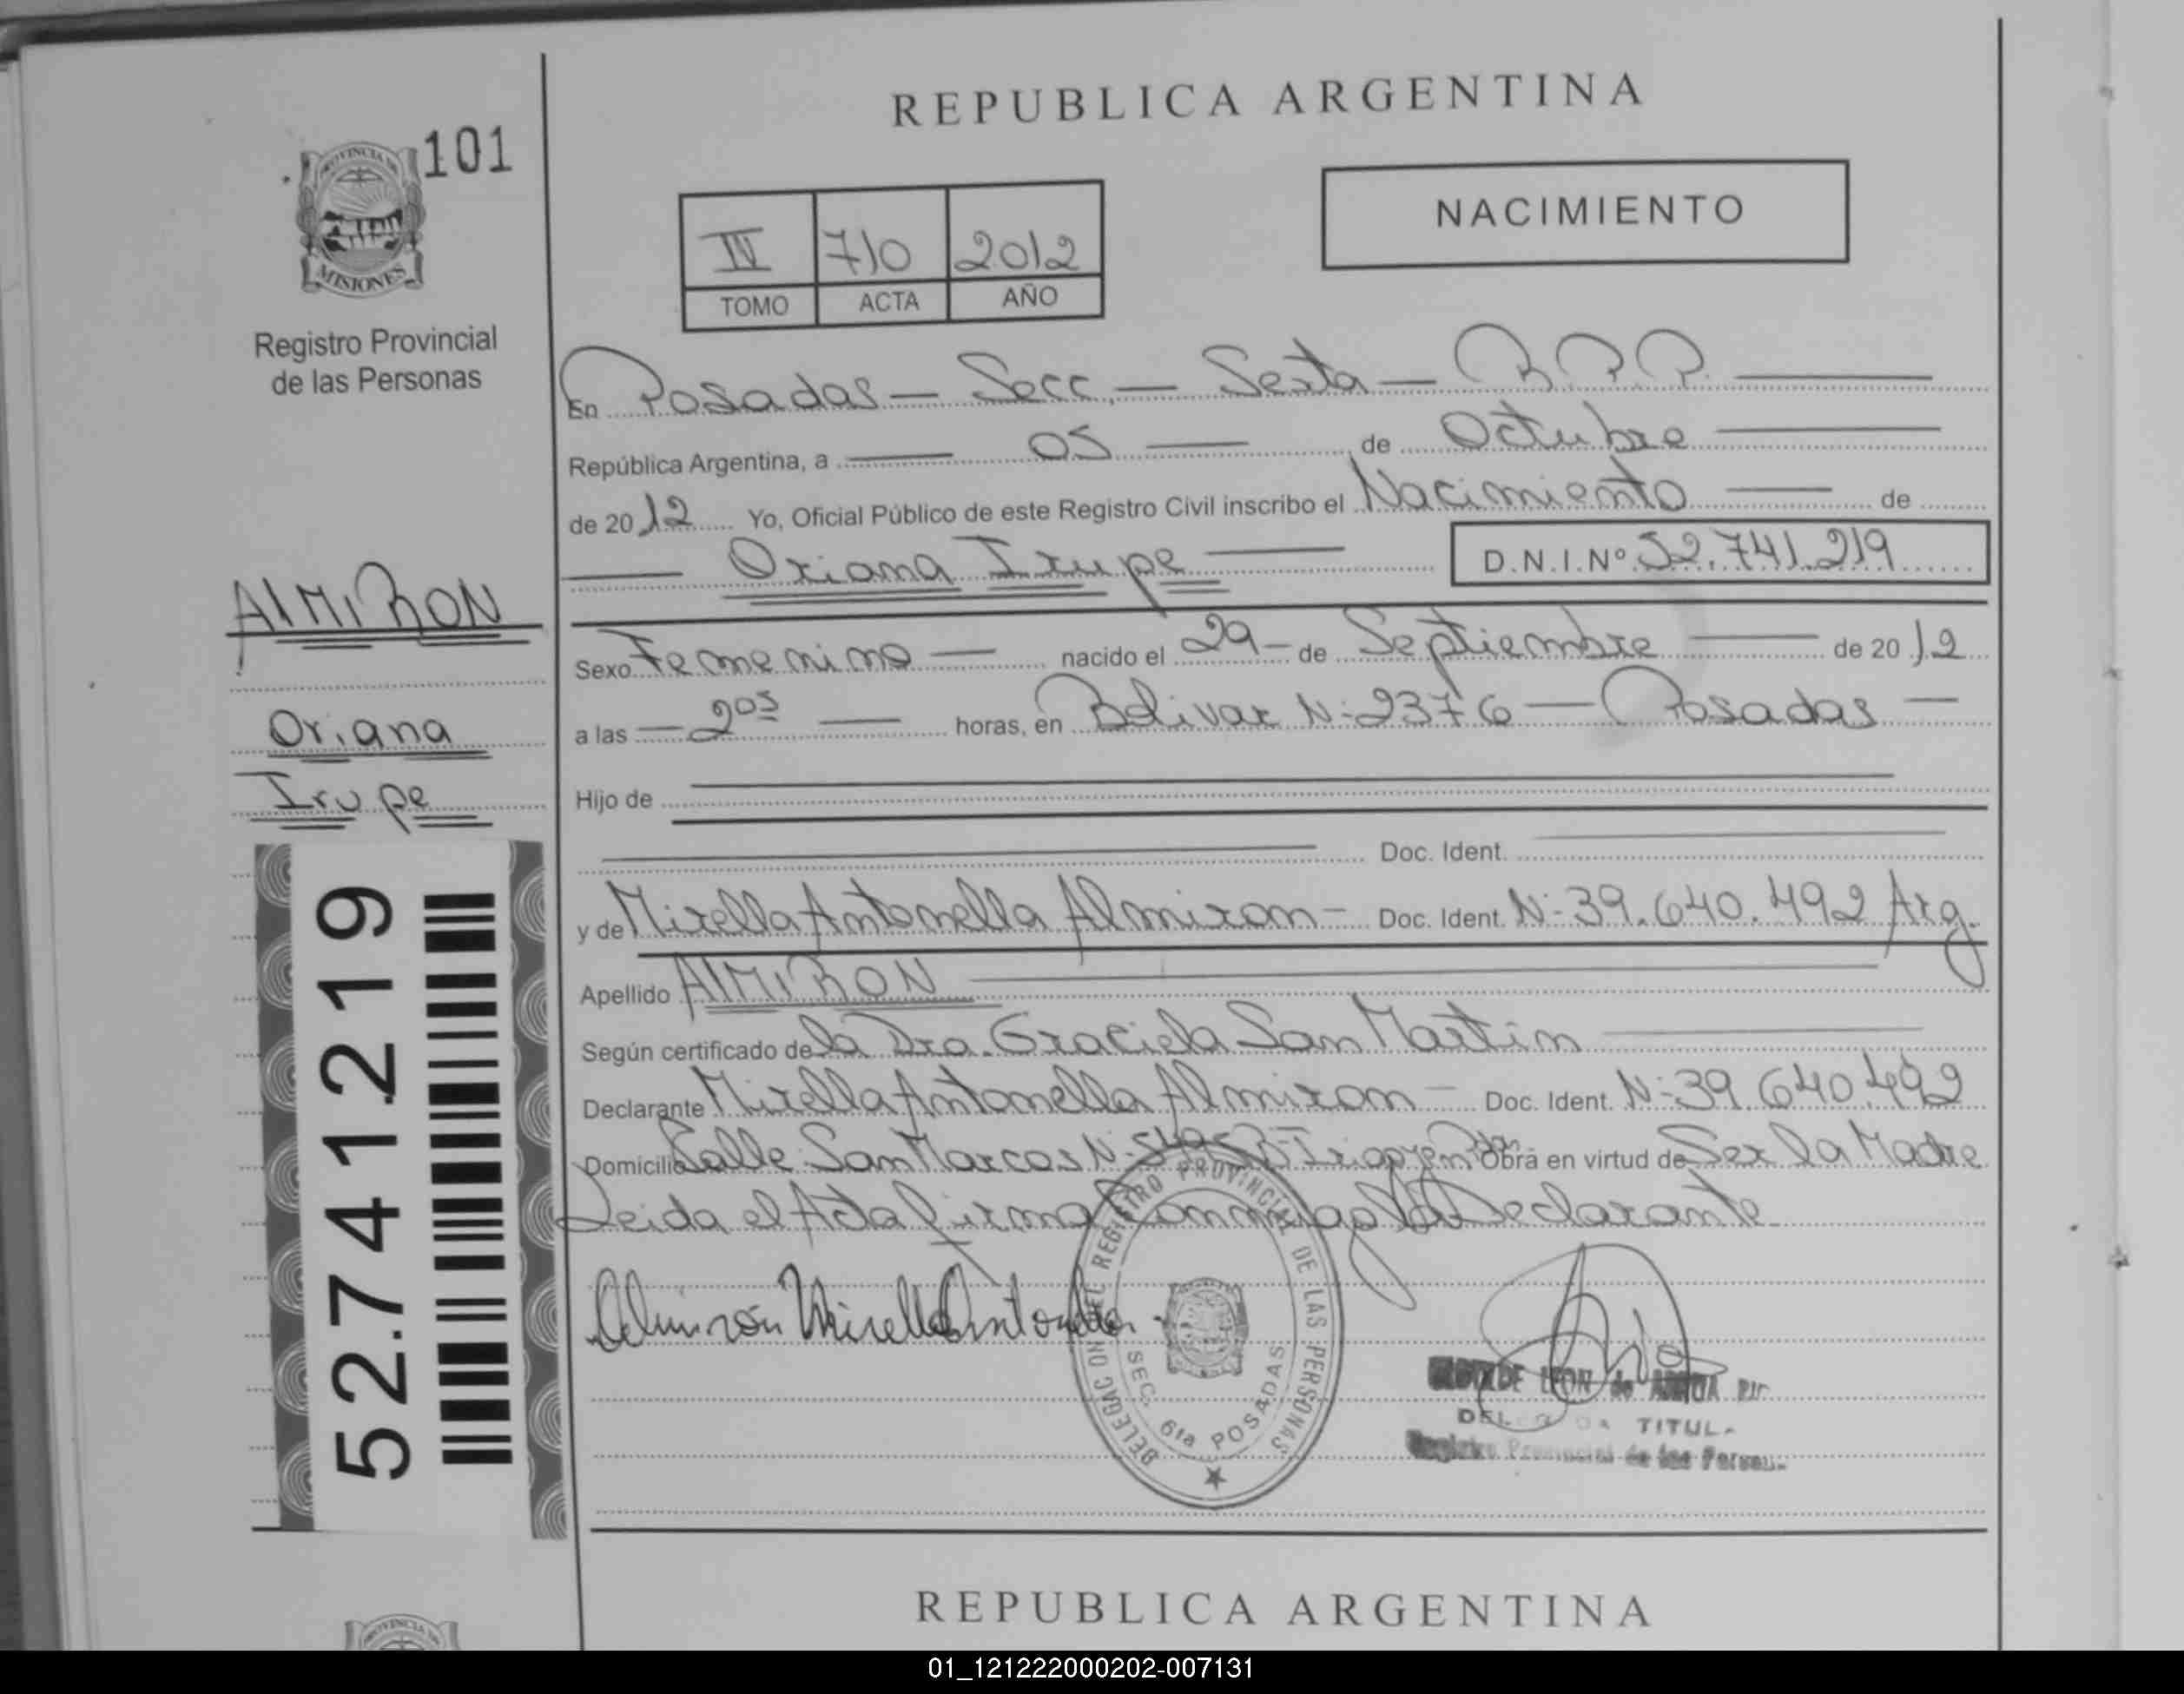 REPUBLICA ARGENTINA
101
PROVINCIA DE
MISIONES
Registro Provincial
de las Personas
NACIMIENTO
IV 710 2012
TOMO ACTA AÑO
En Posadas — Secc. — Sexta — R.P.P.
República Argentina, a 05 de Octubre
de 2012 Yo, Oficial Público de este Registro Civil inscribo el Nacimiento de
Oriana Irupe D.N.I.Nº 52.741.219
ALMIRON
Oriana
Irupe
52.741.219
Sexo Femenino — nacido el 29 — de Septiembre de 2012
a las — 205 — horas, en Bolivar N: 2376 — Posadas —
Hijo de
Doc. Ident.
y de Mirella Antonella Almiron — Doc. Ident. N: 39.640.492 Arg.
Apellido ALMIRON
Según certificado de la Dra. Graciela San Martin
Declarante Mirella Antonella Almiron — Doc. Ident. N: 39.640.492
Domicilio Calle San Marcos N: Obra en virtud de Ser la Madre
Leida el Acta firma Conmigo la Declarante
Almirón Mirella Antonella
REGISTRO PROVINCIAL DE LAS PERSONAS
SEC. 6ta POSADAS
LEON de
TITUL.
Registro Provincial de las Person
REPUBLICA ARGENTINA
01_121222000202-007131